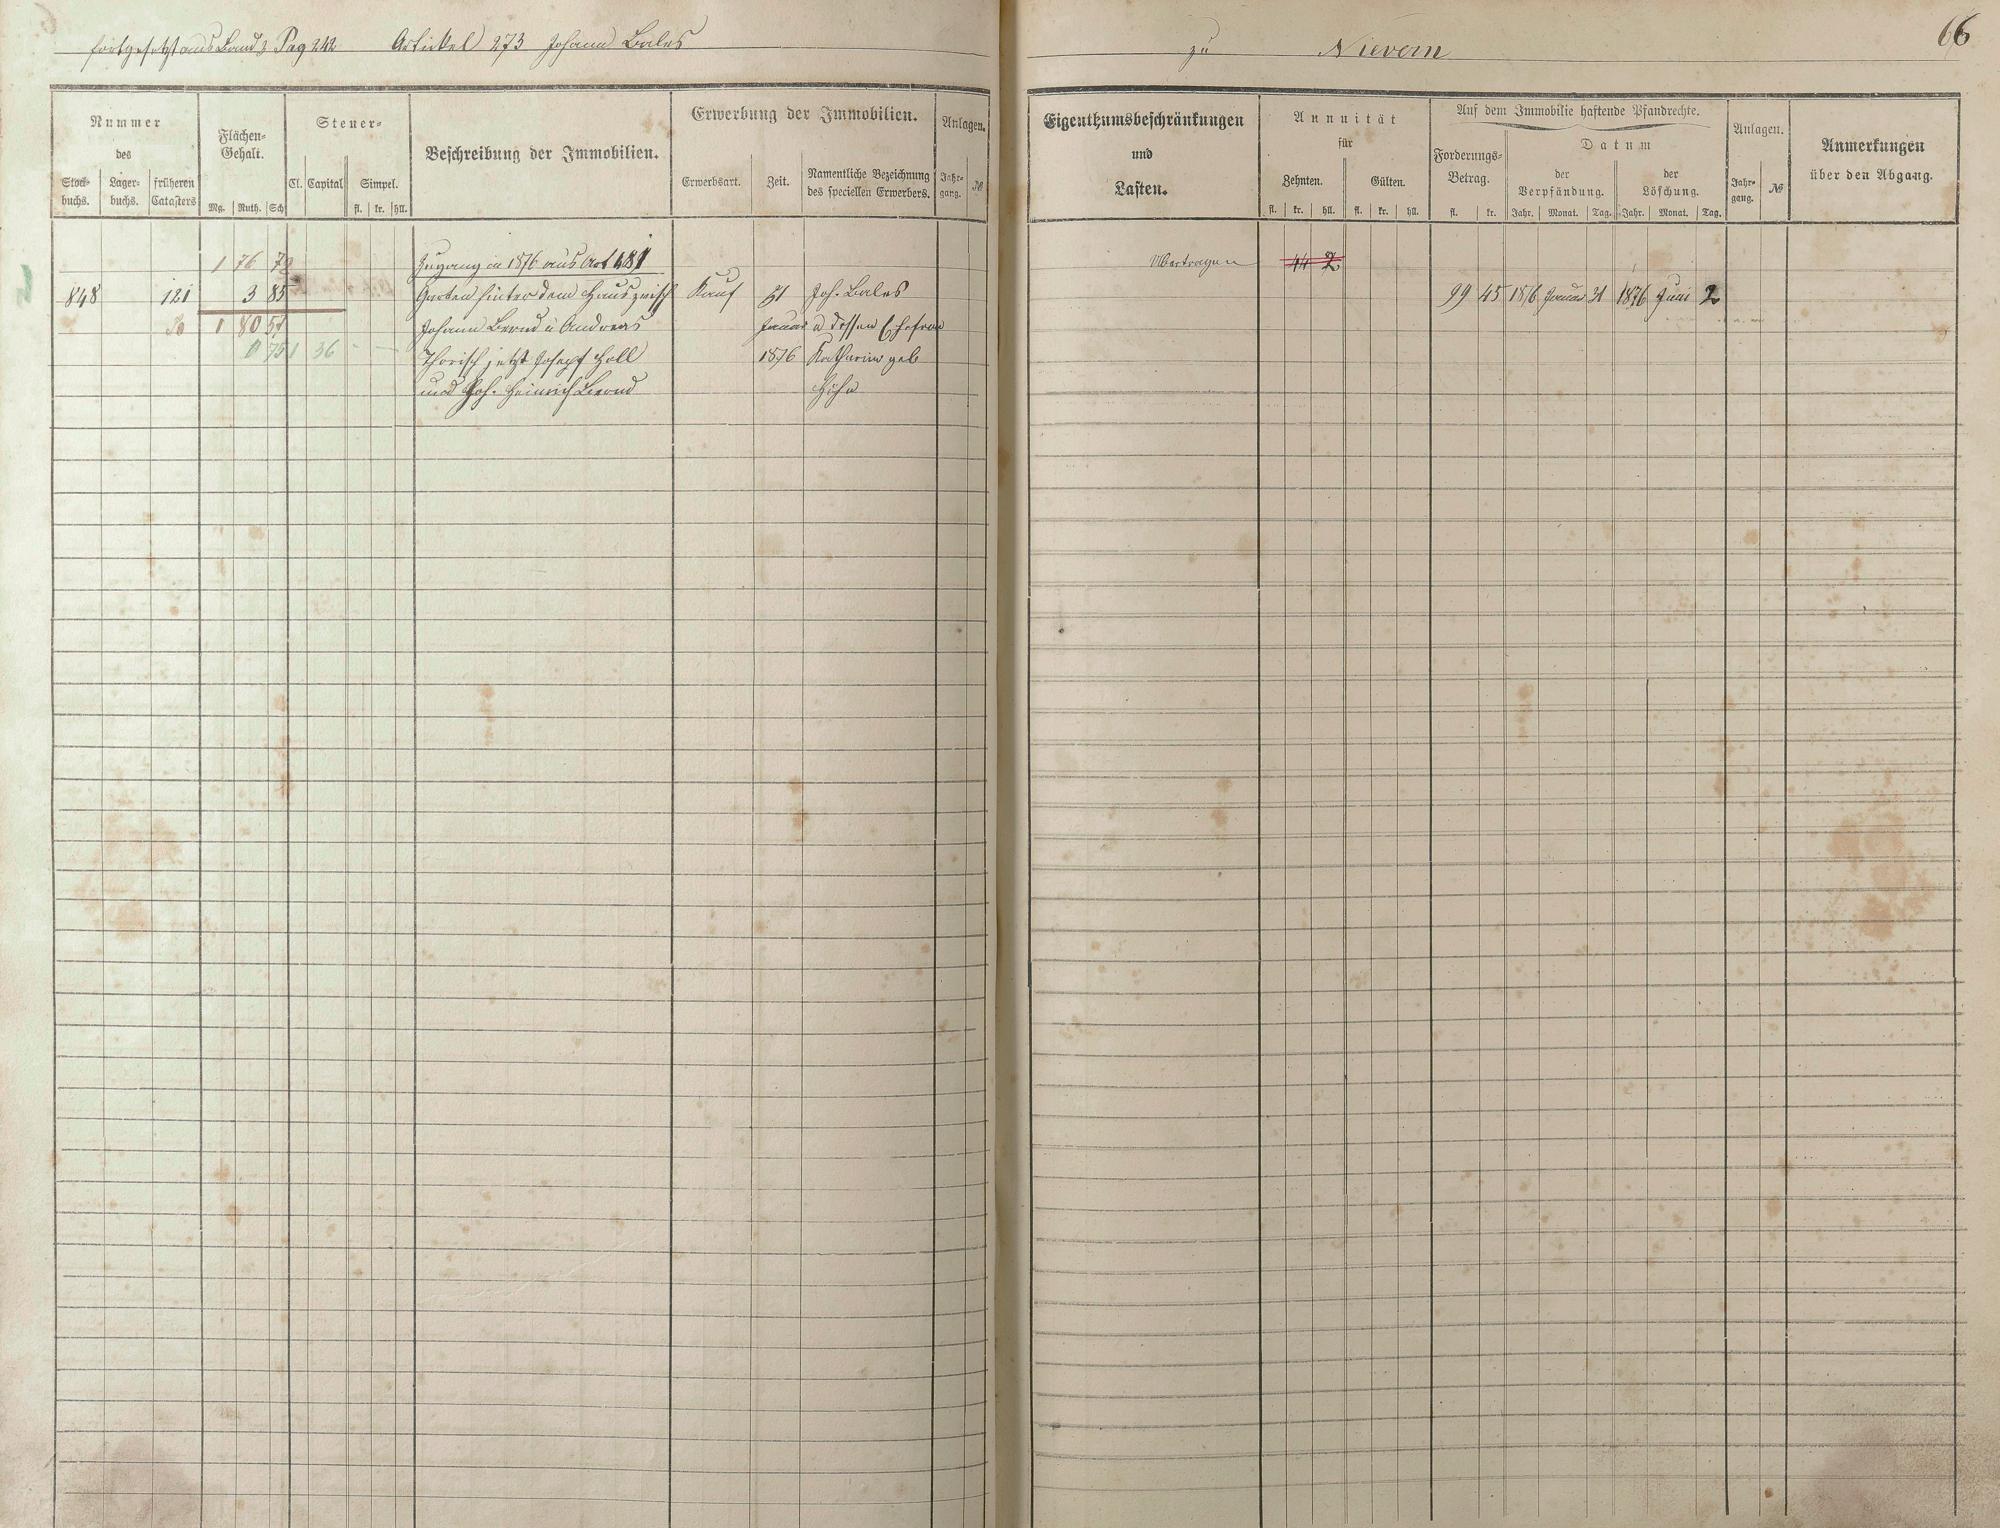 fortgesetzt aus Band 2 Pag 242 Artickel 273 Johann Bales
zu Nievern
66
Nummer
des
Stock-
buchs.
Lager-
buchs.
früheren
Catasters
Flächen-
Gehalt.
Mg. Ruth. Sch
Steuer-
Cl. Capital Simpel.
fl. kr. hll.
Beschreibung der Immobilien.
Erwerbung der Immobilien.
Erwerbsart. Zeit.
Namentliche Bezeichnung
des speciellen Erwerbers.
Anlagen.
Jahr-
gang.
№
Eigenthumsbeschränkungen
und
Lasten.
Annuität
für
Zehnten. Gülten.
fl. kr. hll. fl. kr. hll.
Auf dem Immobilie haftende Pfandrechte.
Forderungs-
Betrag.
fl. kr.
Datum
der
Verpfändung.
der
Löschung.
Jahr. Monat. Tag. Jahr. Monat. Tag.
Anlagen.
Jahr-
gang.
№
Anmerkungen
über den Abgang.
1 76 72 Zugang in 1876 aus Art 481 Übertragen 44 2
848 121 3 85 Garten hinter dem Haus zwisch Kauf 31 Joh. Bales 99 45 1876 Januar 31 1876 Juni 2
1 80 57 Johann Bernd u Andreas Januar u dessen Ehefrau
0 75 1 36 Thorisch jetzt Joseph Holl 1876 Katharina geb
und Joh. Heinrich Bernd Höhn